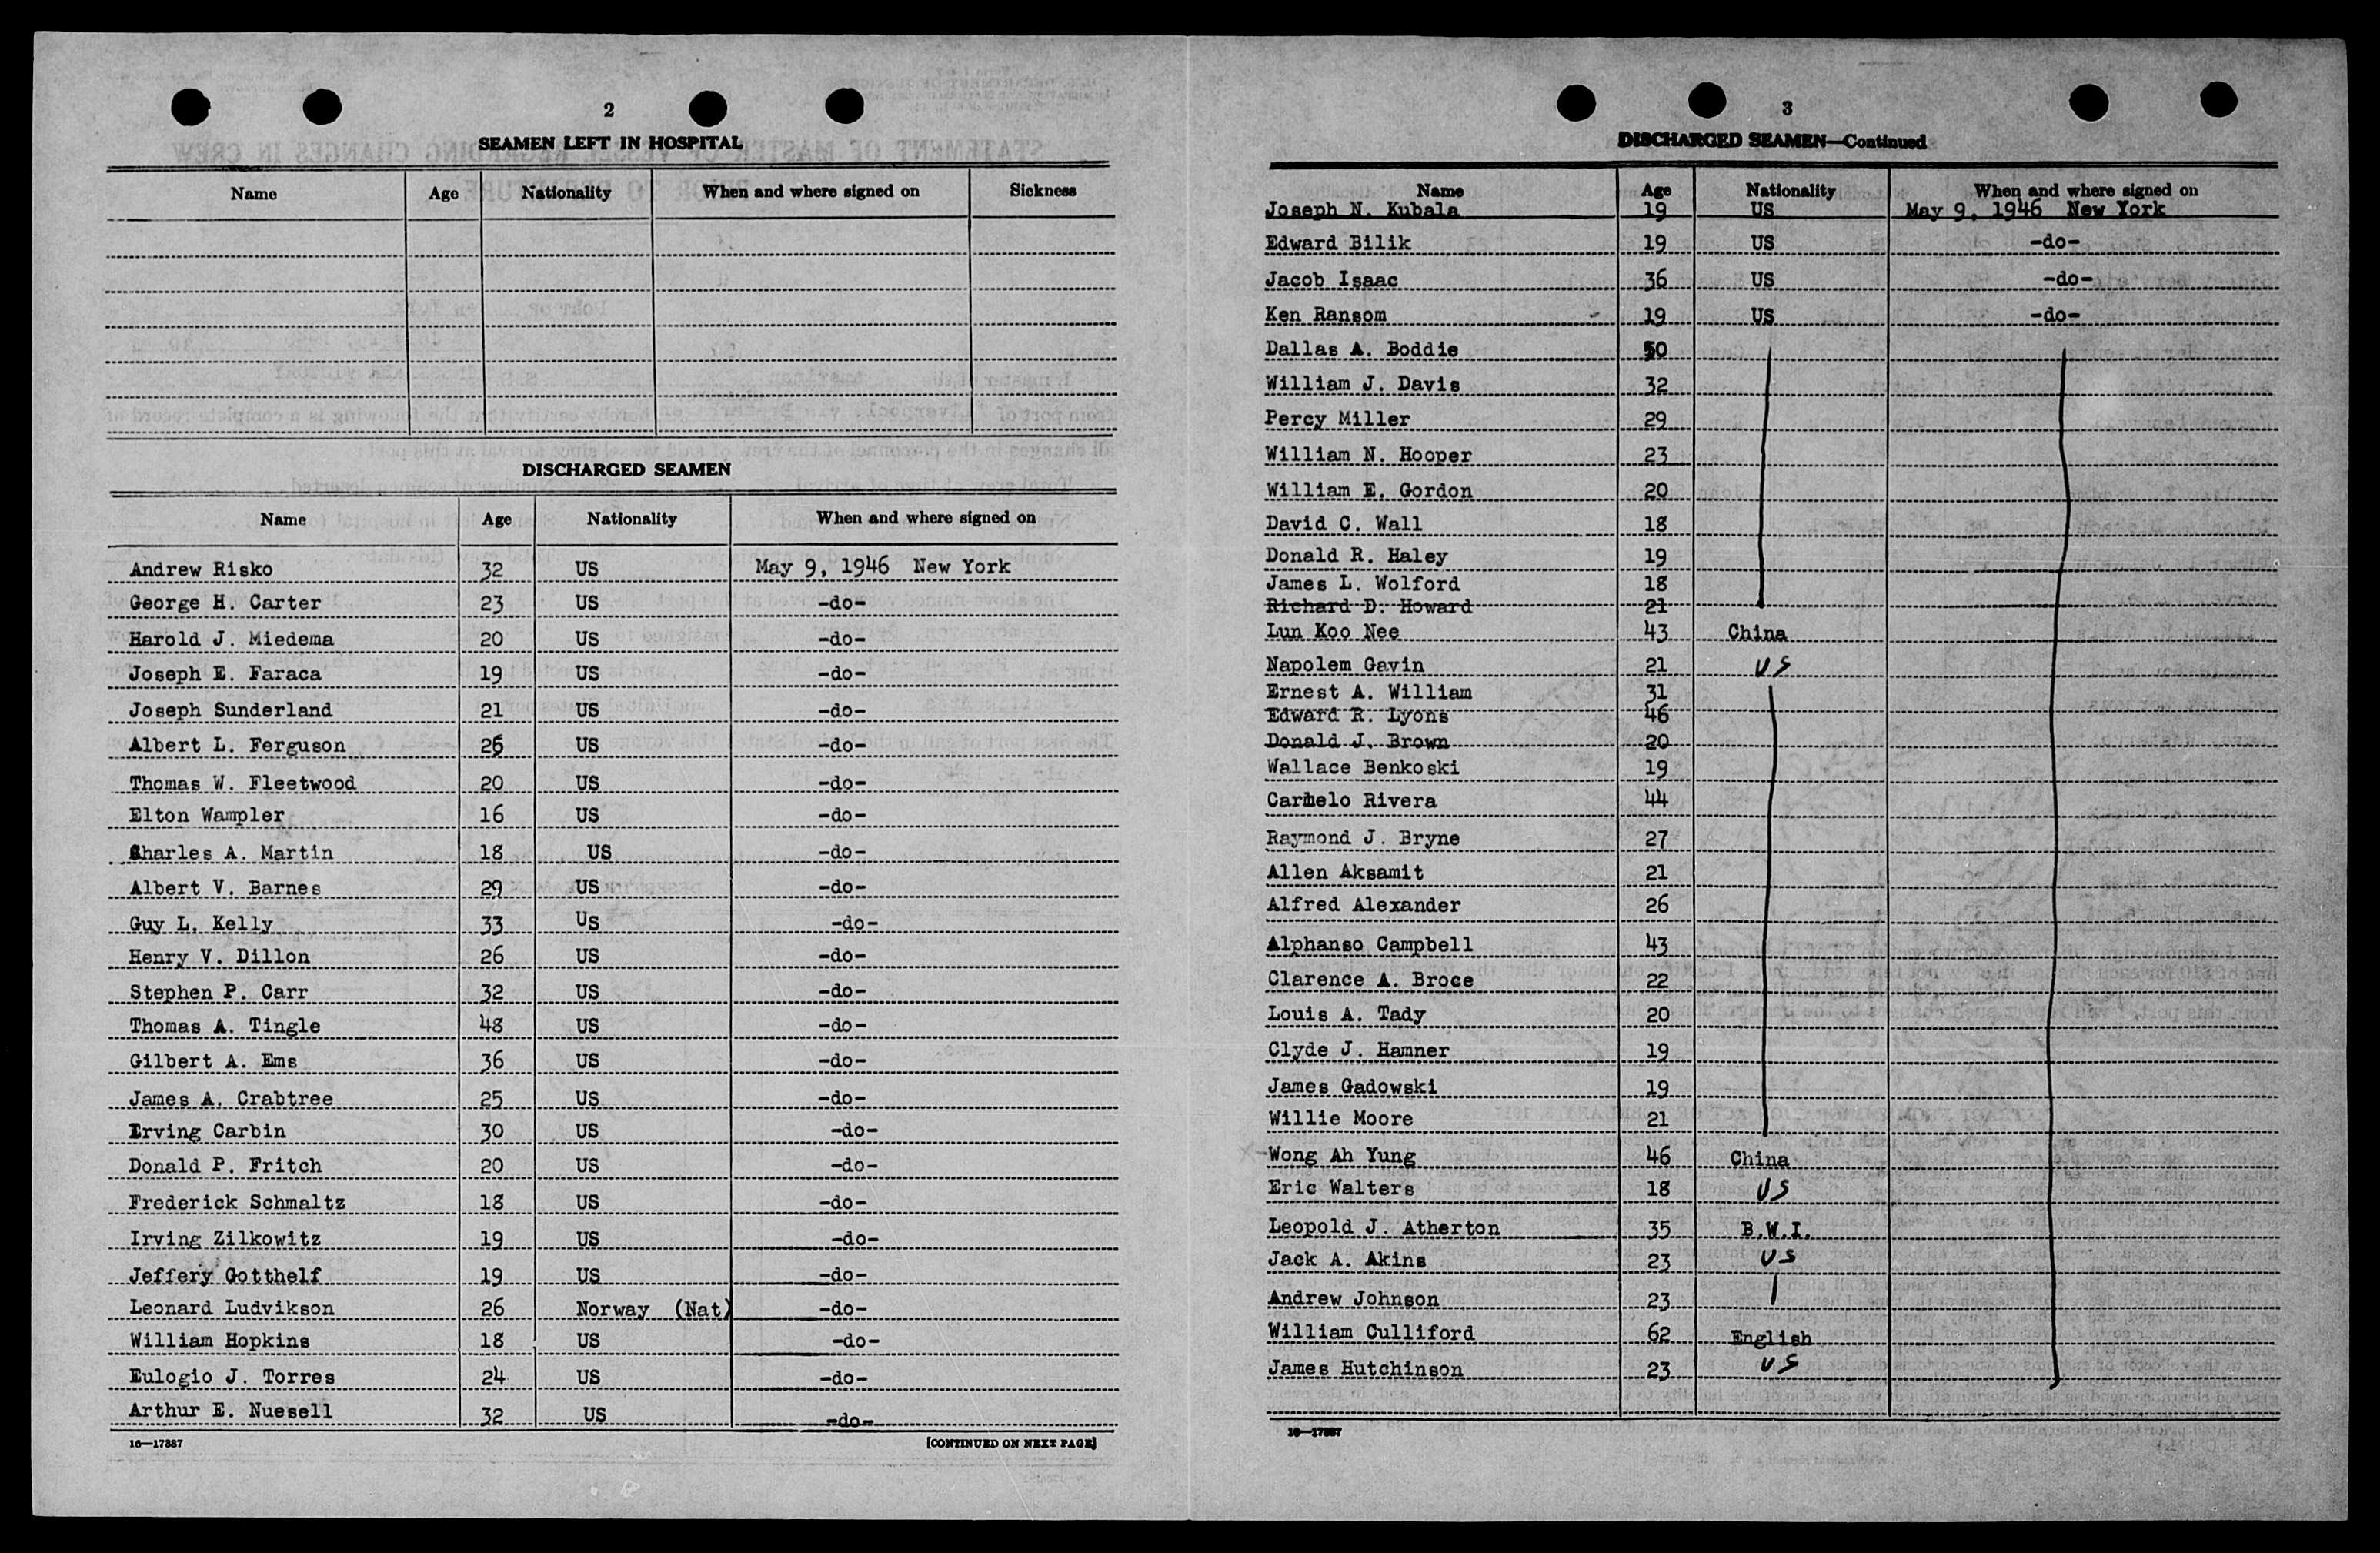 2
SEAMEN LEFT IN HOSPITAL
Name Age Nationality When and where signed on Sickness
DISCHARGED SEAMEN
Name Age Nationality When and where signed on
Andrew Risko 32 US May 9, 1946 New York
George H. Carter 23 US -do-
Harold J. Miedema 20 US -do-
Joseph E. Faraca 19 US -do-
Joseph Sunderland 21 US -do-
Albert L. Ferguson 26 US -do-
Thomas W. Fleetwood 20 US -do-
Elton Wampler 16 US -do-
Charles A. Martin 18 US -do-
Albert V. Barnes 29 US -do-
Guy L. Kelly 33 Us -do-
Henry V. Dillon 26 US -do-
Stephen P. Carr 32 US -do-
Thomas A. Tingle 48 US -do-
Gilbert A. Ems 36 US -do-
James A. Crabtree 25 US -do-
Erving Carbin 30 US -do-
Donald P. Fritch 20 US -do-
Frederick Schmaltz 18 US -do-
Irving Zilkowitz 19 US -do-
Jeffery Gotthelf 19 US -do-
Leonard Ludvikson 26 Norway (Nat) -do-
William Hopkins 18 US -do-
Eulogio J. Torres 24 US -do-
Arthur E. Nuesell 32 US -do-
16—17387 [CONTINUED ON NEXT PAGE]
3
DISCHARGED SEAMEN—Continued
Name Age Nationality When and where signed on
Joseph N. Kubala 19 US May 9, 1946 New York
Edward Bilik 19 US -do-
Jacob Isaac 36 US -do-
Ken Ransom 19 US -do-
Dallas A. Boddie 50
William J. Davis 32
Percy Miller 29
William N. Hooper 23
William E. Gordon 20
David C. Wall 18
Donald R. Haley 19
James L. Wolford 18
Richard D. Howard 21
Lun Koo Nee 43 China
Napolem Gavin 21 US
Ernest A. William 31
Edward R. Lyons 46
Donald J. Brown 20
Wallace Benkoski 19
Carmelo Rivera 44
Raymond J. Bryne 27
Allen Aksamit 21
Alfred Alexander 26
Alphanso Campbell 43
Clarence A. Broce 22
Louis A. Tady 20
Clyde J. Hamner 19
James Gadowski 19
Willie Moore 21
Wong Ah Yung 46 China
Eric Walters 18 US
Leopold J. Atherton 35 B.W.I.
Jack A. Akins 23 US
Andrew Johnson 23
William Culliford 62 English
James Hutchinson 23 US
16—17387